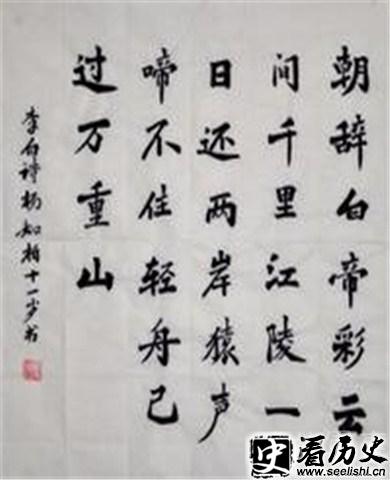 朝辞白帝彩云
间千里江陵一
日还两岸猿声
啼不住轻舟已
过万重山
李白诗杨知柏十一岁书
史看历史
www.seelishi.cn